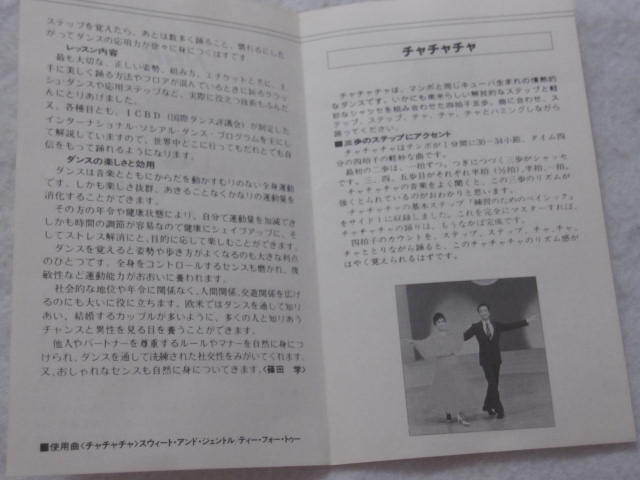 ステップを覚えたら、あとは数多く踊ること、慣れるにした
がってダンスの応用力が徐々に身につくはずです
レッスン内容
最も大切な、正しい姿勢、組み方、エチケットとともに、上
手に美しく踊る方法やフロアが混んでいるときに踊るラッ
シュダンスや応用ステップなど、実際に役立つ技術もふんだ
んにとりあげました。
又、各種目とも、ICBD(国際ダンス評議会)が制定した
インターナショナル・ソシアル・ダンス・プログラムを主にし
て解説していますので、世界中どこに行ってもだれとでも自
信をもって踊れるようになります。
ダンスの楽しさと効用
ダンスは音楽とともにからだを動かすむりのない全身運動
です。しかも楽しさ抜群、あきることなくかなりの運動量を
消化することができます。
その方の年令や健康状態により、自分で運動量を加減でき
しかも時間の調節が容易なので健康にシェイプアップに、そ
してストレス解消にと、目的に応じて楽しむことができます。
ダンスを覚えると姿勢や歩き方がよくなるのも大きな利点
のひとつです。全身をコントロールするセンスも磨かれ、俊
敏性など運動能力がおおいに養われます。
社会的な地位や年令に関係なく、人間関係、交遊関係を広げ
るのにも大いに役に立ちます。欧米ではダンスを通して知り
あい、結婚するカップルが多いように、多くの人と知りあう
チャンスと異性を見る目を養うことができます。
他人やパートナーを尊重するルールやマナーを自然に身につ
けられ、ダンスを通して洗練された社交性をみがいてくれます。
又、おしゃれなセンスも自然に身についてきます。〈篠田 学〉
■使用曲〈チャチャチャ〉スウィート・アンド・ジェントル、ティー・フォー・トゥー
チャチャチャ
チャチャチャは、マンボと同じキューバ生まれの情熱的
なダンスです。いかにも南米らしい解放的なステップと軽
妙なシャッセを組み合わせた四拍子五歩、曲に合わせ、ス
テップ、ステップ、チャ、チャ、チャとハミングしながら
踊ってください。
■三歩のステップにアクセント
チャチャチャはテンポが1分間に30−34小節、タイム四
分の四拍子の軽妙な曲です。
最初の二歩は、一拍ずつ。つぎにつづく三歩がシャッセ
です。三、四、五歩目がそれぞれ半拍(½拍)、半拍、一拍。
チャチャチャの音楽をよく聞くと、この三歩のリズムが
強くとられているのがおわかりと思います。
チャチャチャの基本ステップ「練習のためのベイシック」
をサイド1に収録しました。これを完全にマスターすれば、
チャチャチャの踊りは、もうなかば完成です。
四拍子のカウントを、ステップ、ステップ、チャ、チャ、
チャととりながら踊ると、このチャチャチャのリズム感が
はやく覚えられるはずです。